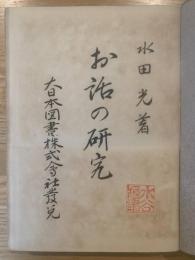 水田光著
お話の研究
大日本図書株式會社發兌